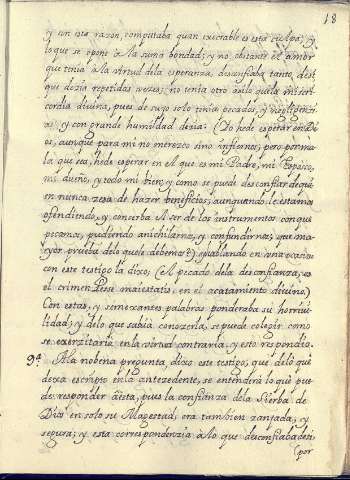 18
y en esta razon, computaba quan execrable es esta culpa, y
lo que se opone à la suma bondad; y no obstante el amor
que tenia à la virtud dela esperanza, desconfiaba tanto desi
que dezia repetidas vezes; no tenia otro asilo que la miseri-
cordia divina, pues de suyo solo tenia pecados, y negligenzi
as, y con grande humildad dezia: (Yo hede esperar en Di-
os, aunque para mi no merezco sino infiernos; pero por ma-
la que sea, hede esperar en el que es mi Padre, mi Esposo,
mi dueño, y todo mi bien, y como se puede desconfiar de qui-
en nunca zesa de hazer beneficios, aunquando le estamos
ofendiendo, y conserba el ser de los instrumentos con que
pecamos, pudiendo anichilarnos, y confundirnos; que ma-
yor prueba delo que le debemos?) y hablando en una ocasion
con este testigo la dixo, (el pecado dela desconfianza, es
el crimen lese maiestatis, en el acatamiento divino.)
Con estas, y semexantes palabras ponderaba su horribi-
lidad; y delo que sabia conozerla, se puede colegir como
se exerzitaria en la virtud contraria, y esto respondio.
9ª. A la nobena pregunta, dixo este testigo, que delo que
dexa escripto en la antezedente, se entenderá lo que pue-
de responder à esta, pues la confianza dela Sierba de
Dios en solo su Magestad, era tambien zanjada, y
segura; y esta correspondenzia à lo que desconfiaba de si
(por